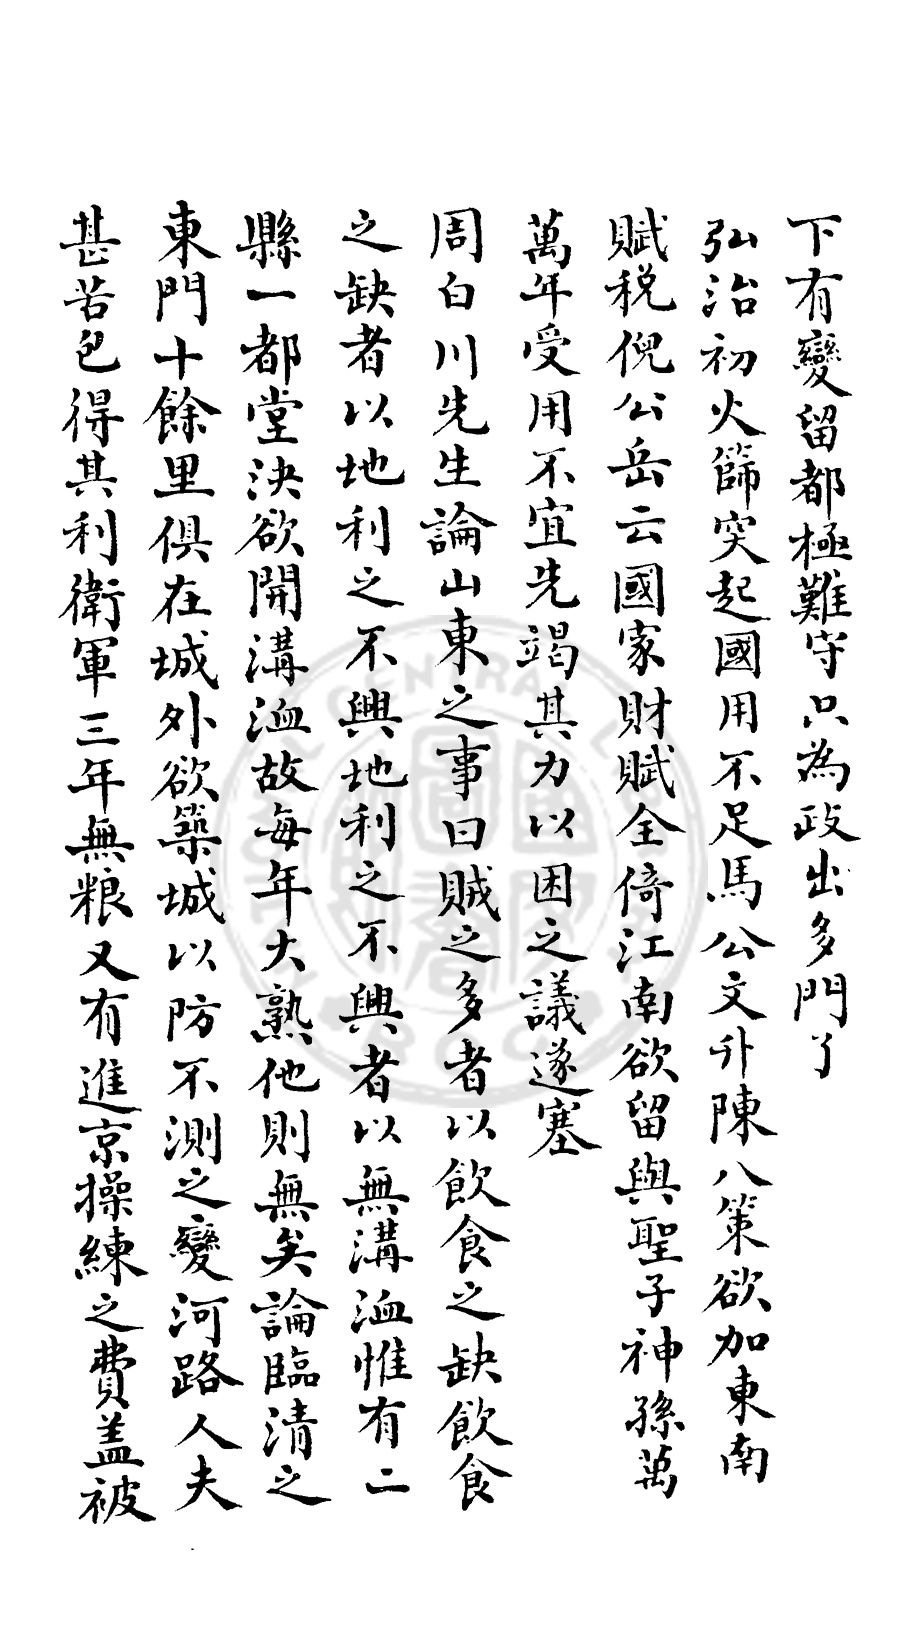 下有變留都極難守只為政出多門了
弘治初火篩突起國用不足馬公文升陳八策欲加東南
賦税倪公岳云國家財賦全倚江南欲留與聖子神孫萬
萬年受用不宜先竭其力以困之議遂塞
周白川先生論山東之事曰賊之多者以飲食之缺飲食
之缺者以地利之不興地利之不興者以無溝洫惟有二
縣一都堂決欲開溝洫故每年大熟他則無矣論臨清之
東門十餘里俱在城外欲築城以防不測之變河路人夫
甚苦包得其利衛軍三年無粮又有進京操練之費盖被